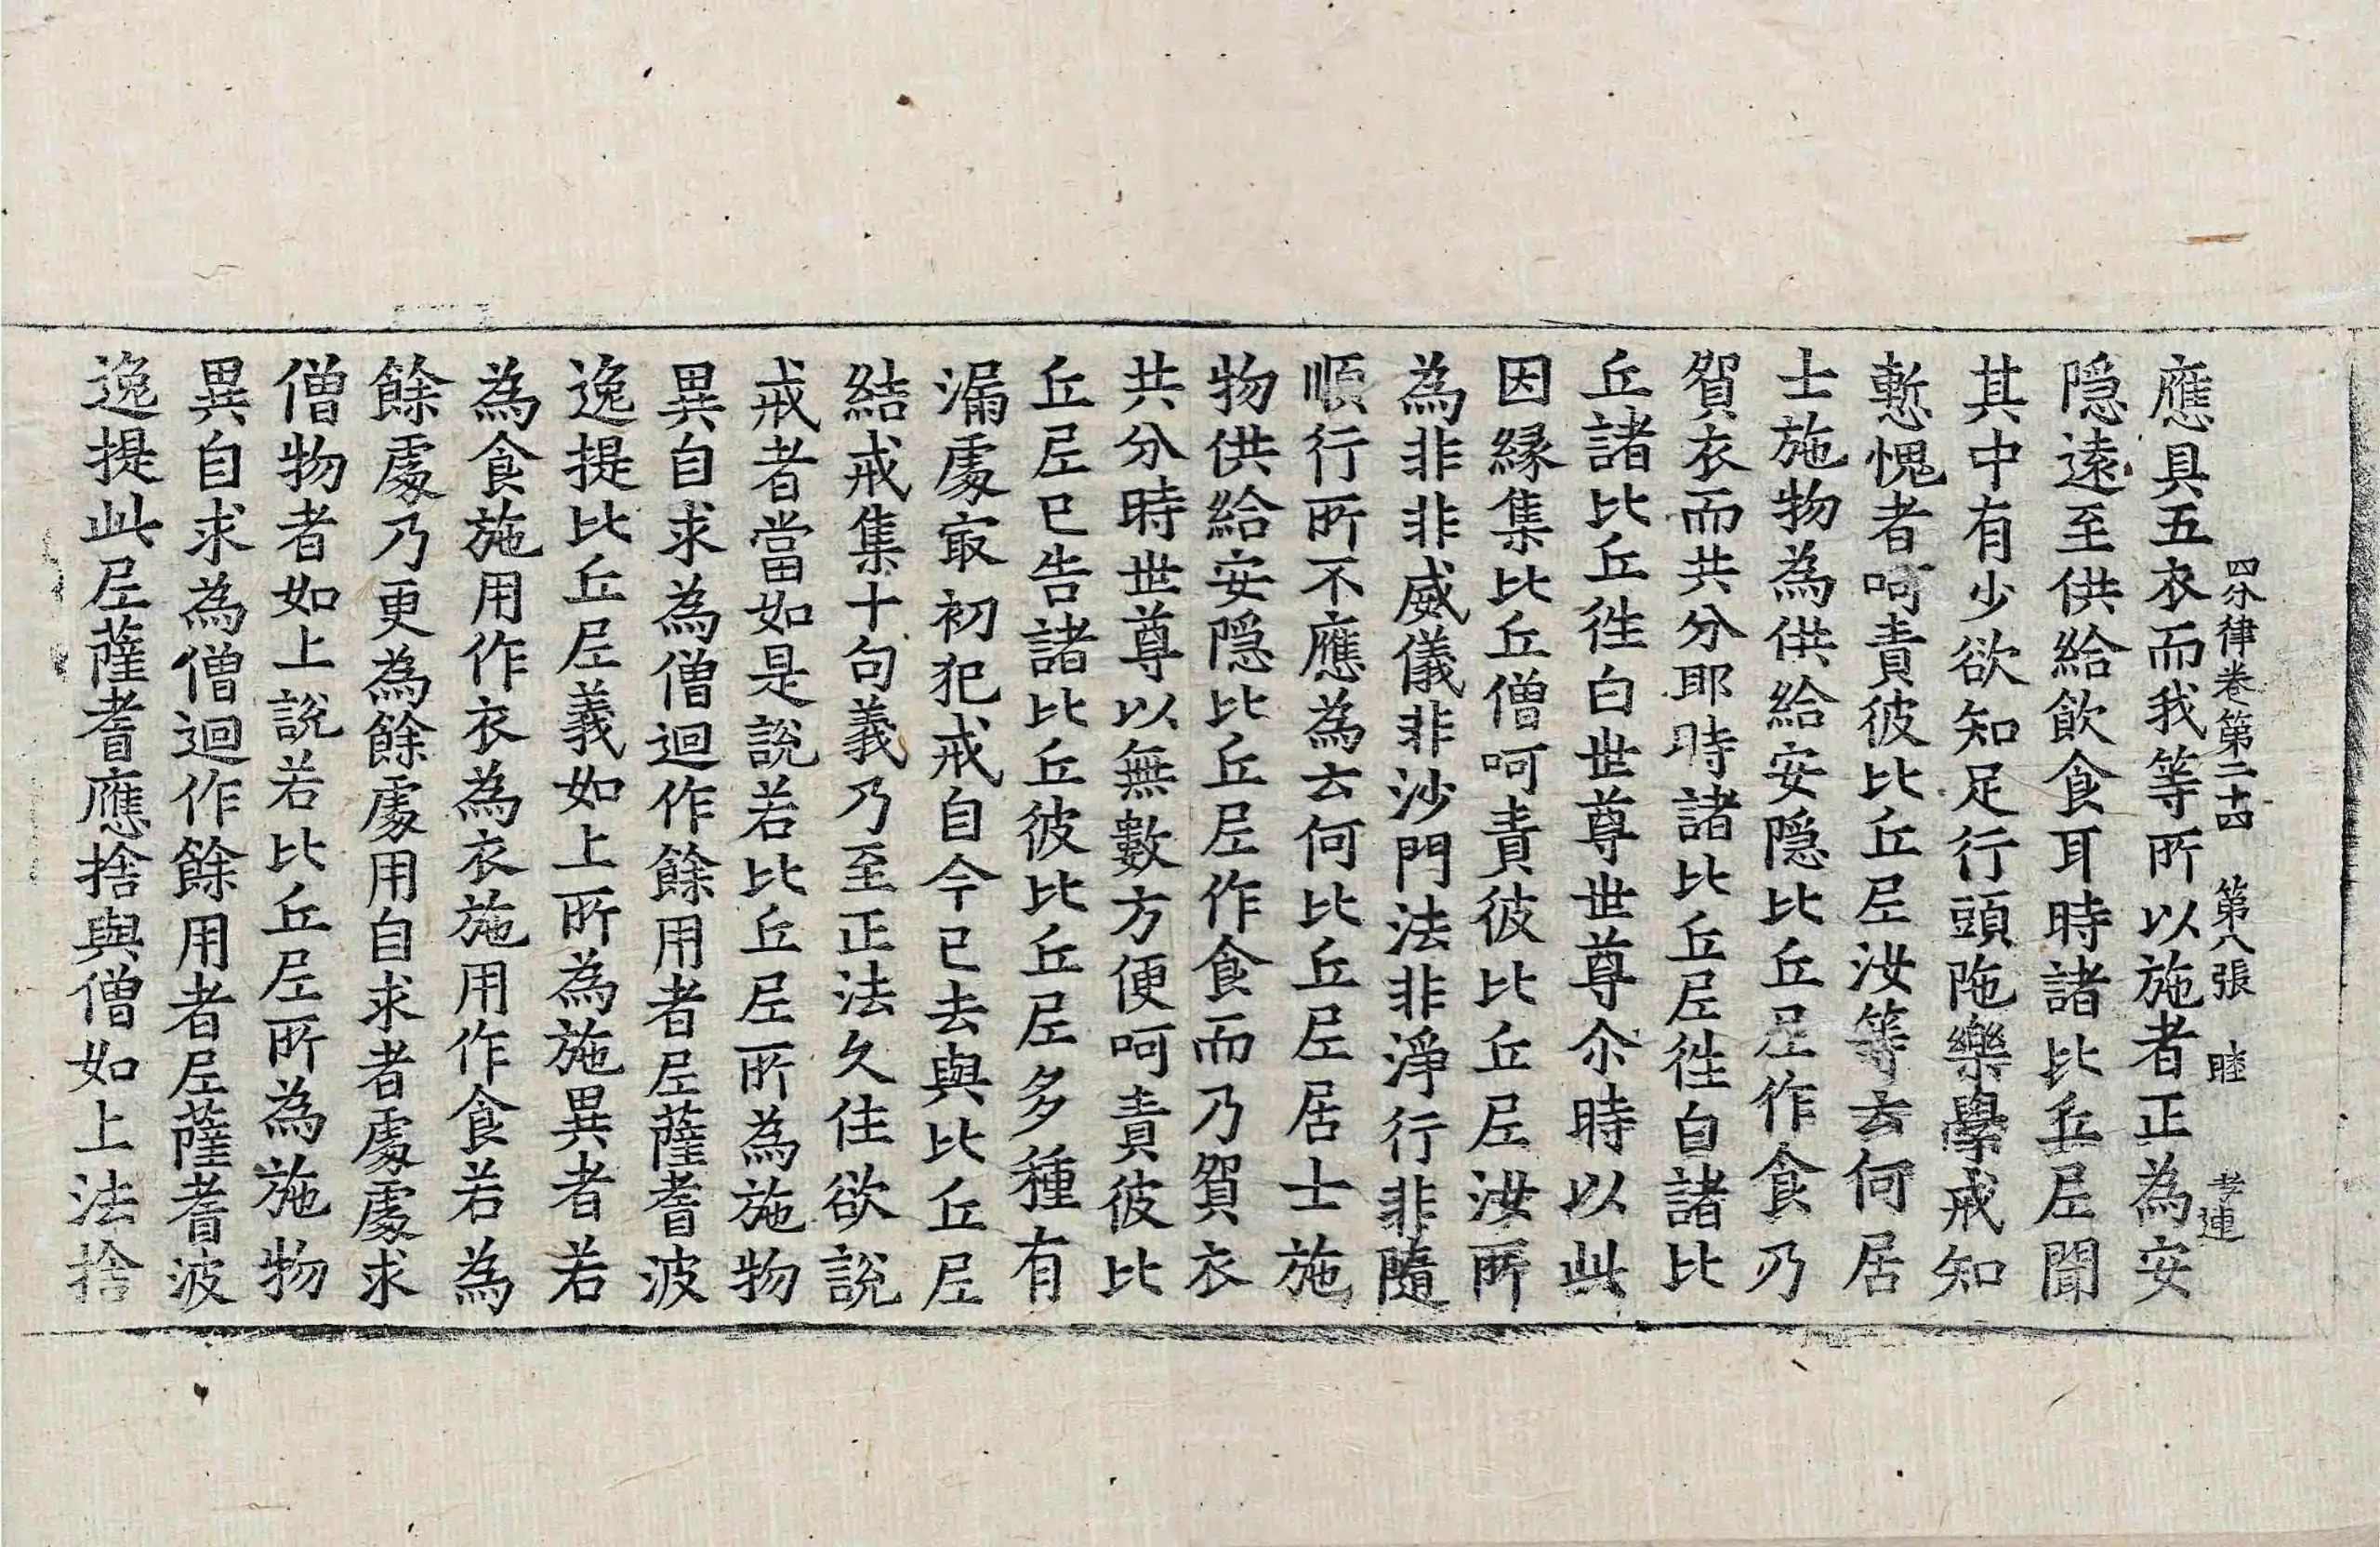 四分律卷第二十四　第八張　睦　孝連
應具五衣而我等所以施者正為安
隐遠至供給飲食耳時諸比丘尼聞
其中有少欲知足行頭陁樂學戒知
慙愧者呵責彼比丘尼汝等云何居
士施物為供給安隐比丘尼作食乃
貿衣而共分耶時諸比丘尼徃白諸比
丘諸比丘徃白世尊世尊尒時以此
因縁集比丘僧呵責彼比丘尼汝所
為非非威儀非沙門法非淨行非隨
順行所不應為云何比丘尼居士施
物供給安隐比丘尼作食而乃貿衣
共分時世尊以無數方便呵責彼比
丘尼已告諸比丘彼比丘尼多種有
漏處㝡初犯戒自今已去與比丘尼
結戒集十句義乃至正法久住欲說
戒者當如是說若比丘尼所為施物
異自求為僧迴作餘用者尼薩耆波
逸提比丘尼義如上所為施異者若
為食施用作衣為衣施用作食若為
餘處乃更為餘處用自求者處處求
僧物者如上說若比丘尼所為施物
異自求為僧迴作餘用者尼薩耆波
逸提此尼薩耆應捨與僧如上法捨